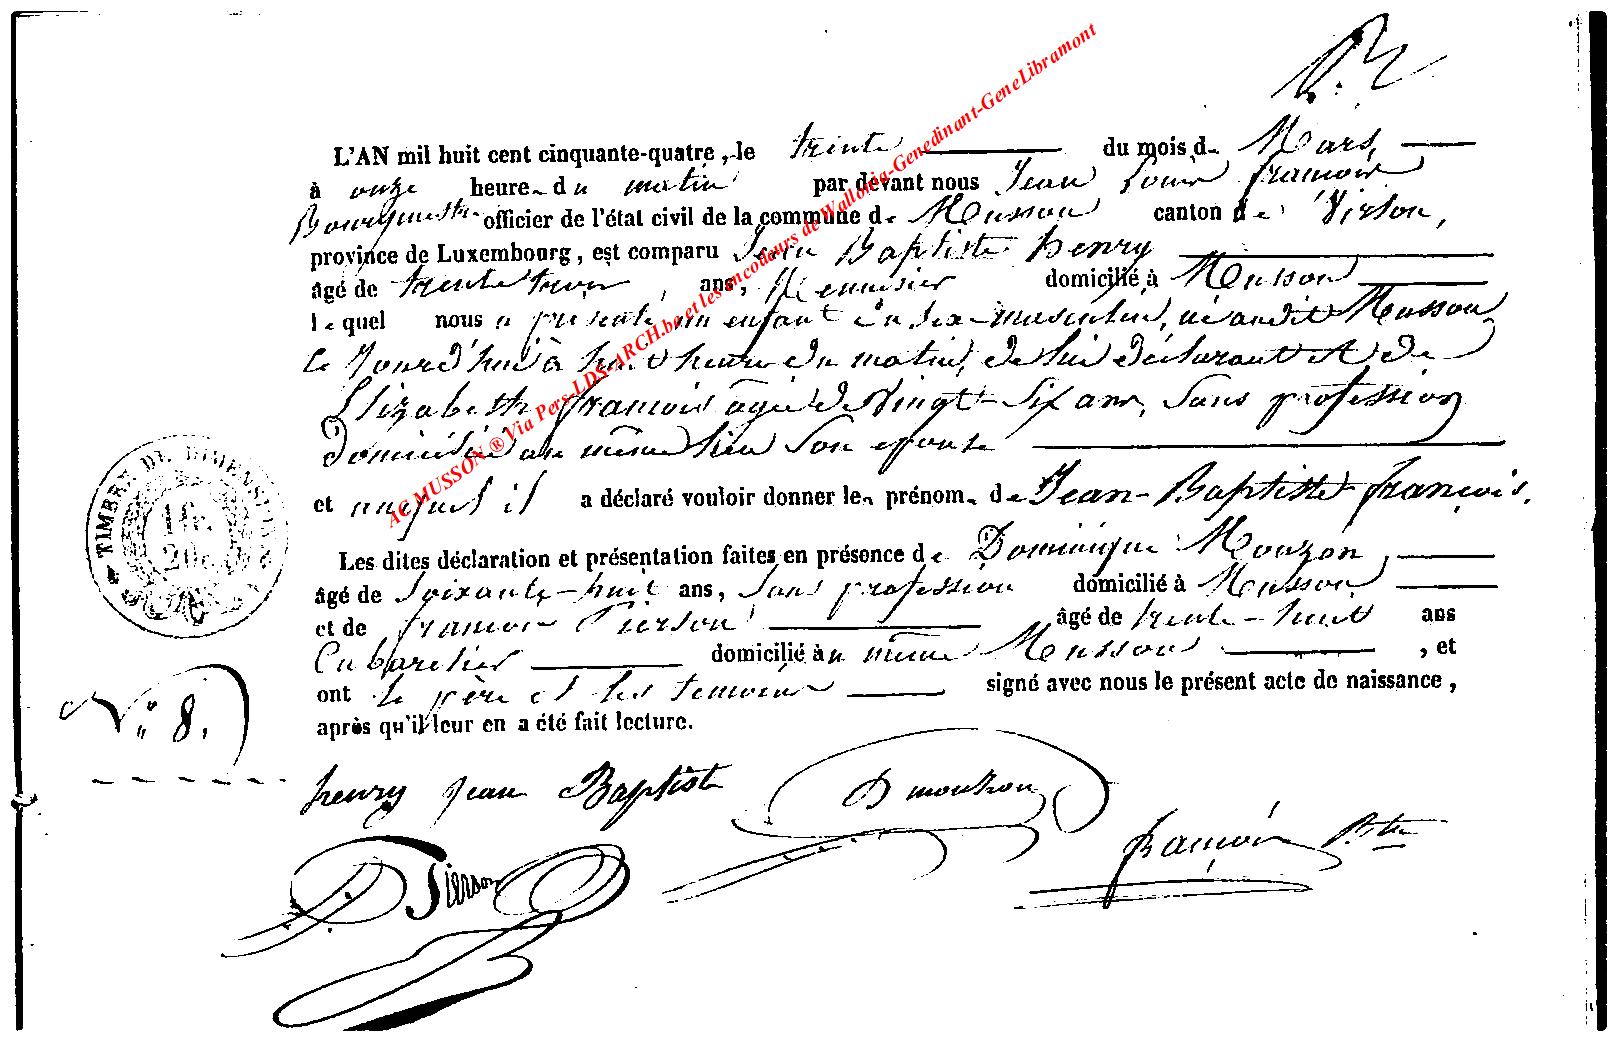 L'AN mil huit cent cinquante-quatre, le trente du mois de Mars,
à onze heures du matin par devant nous Jean Louis françois
Bourgmestre officier de l'état civil de la commune de Musson canton de Virton,
province de Luxembourg, est comparu Jean Baptiste henry
âgé de trente trois ans, Menuisier domicilié à Musson
lequel nous a présenté un enfant du sexe masculin, né audit Musson
ce Jourd'hui à huit heures du matin, de lui déclarant et de
Elizabeth françois agée de Vingt-Six ans, Sans profession
domiciliée au même lieu Son epouse
et auquel il a déclaré vouloir donner les prénoms de Jean-Baptiste-françois.
Les dites déclaration et présentation faites en présence de Dominique Mouzon,
âgé de soixante-huit ans, Sans profession domicilié à Musson
et de françois Pierson âgé de trente-huit ans
Cabaretier domicilié au même Musson, et
ont le père et les temoins signé avec nous le présent acte de naissance,
après qu'il leur en a été fait lecture.
TIMBRE DE DIMENSION
N° 8.
henry jean Baptiste
D mouzon
Pierson
françois Bttre
AC MUSSON ® Via Pers-LDS-ARCH.be et les encodeurs de Wallonia-Genedinant-GeneLibramont